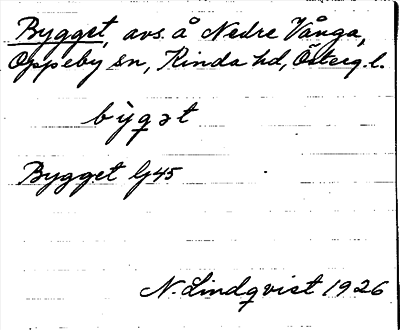 Bygget, avs. å Nedre Vånga,
Oppeby sn, Kinda hd, Österg. l.
bỳgət
Bygget G45
N. Lindqvist 1926